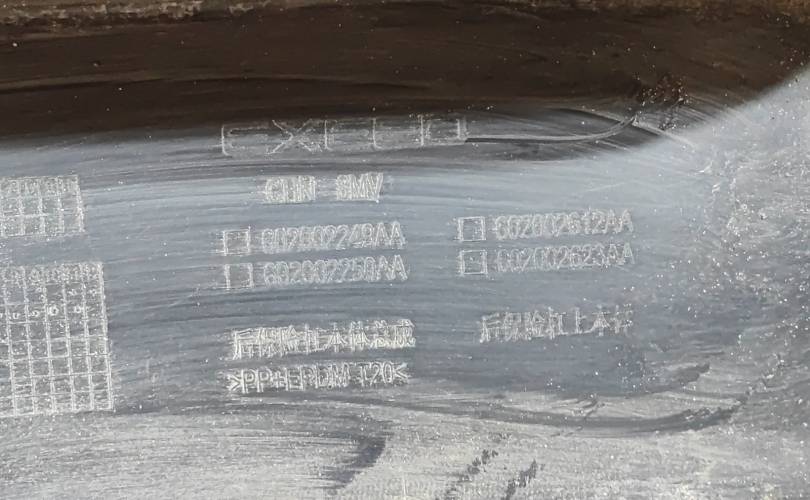 EXEED
CHN SMV
602002249AA 602002612AA
602002250AA 602002623AA
后保险杠本体总成 后保险杠上本体
>PP+EPDM-T20<